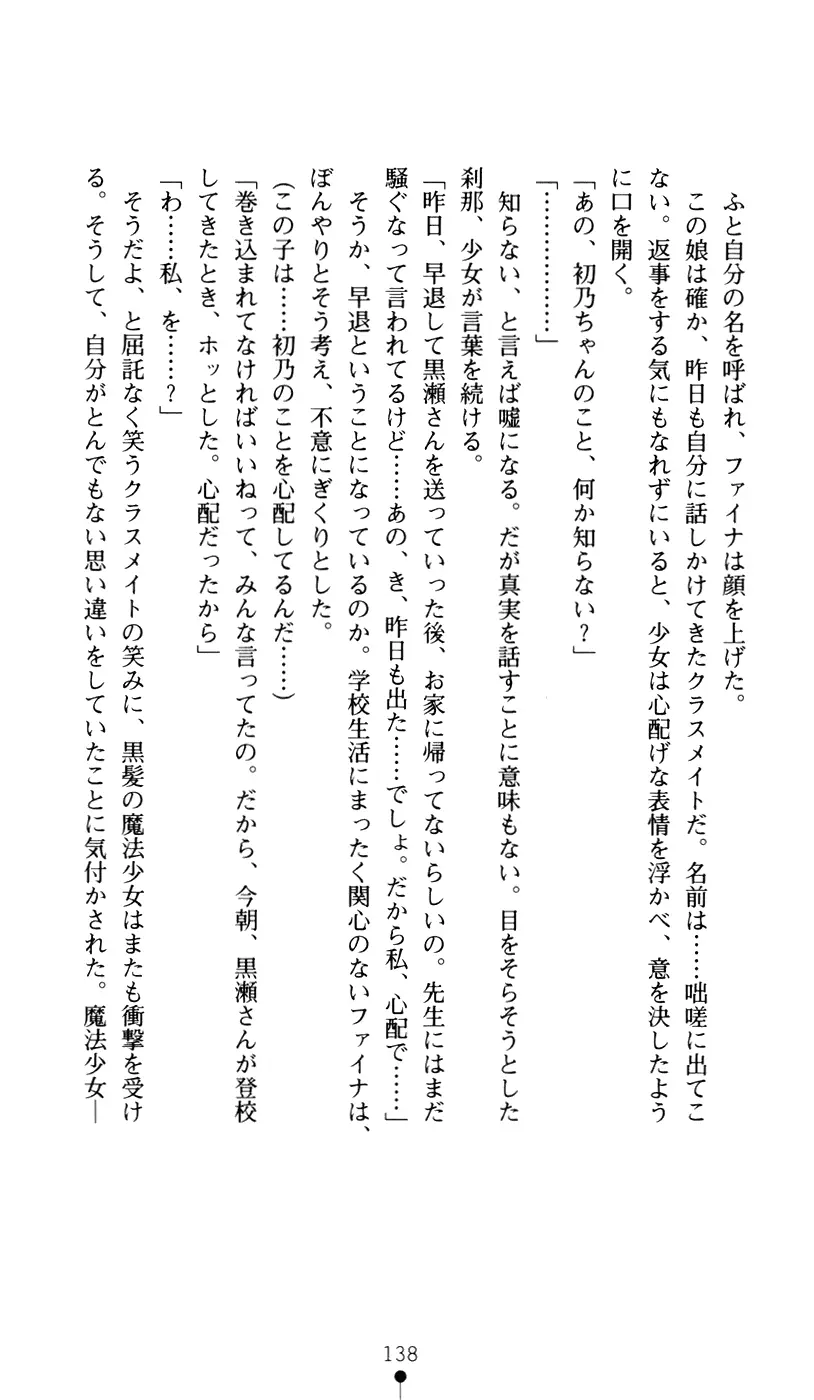 ふと自分の名を呼ばれ、ファイナは顔を上げた。
この娘は確か、昨日も自分に話しかけてきたクラスメイトだ。名前は……咄嗟に出てこ
ない。返事をする気にもなれずにいると、少女は心配げな表情を浮かべ、意を決したよう
に口を開く。
「あの、初乃ちゃんのこと、何か知らない？」
「………………」
知らない、と言えば嘘になる。だが真実を話すことに意味もない。目をそらそうとした
刹那、少女が言葉を続ける。
「昨日、早退して黒瀬さんを送っていった後、お家に帰ってないらしいの。先生にはまだ
騒ぐなって言われてるけど……あの、き、昨日も出た……でしょ。だから私、心配で……」
そうか、早退ということになっているのか。学校生活にまったく関心のないファイナは、
ぼんやりとそう考え、不意にぎくりとした。
(この子は……初乃のことを心配してるんだ……)
「巻き込まれてなければいいねって、みんな言ってたの。だから、今朝、黒瀬さんが登校
してきたとき、ホッとした。心配だったから」
「わ……私、を……？」
そうだよ、と屈託なく笑うクラスメイトの笑みに、黒髪の魔法少女はまたも衝撃を受け
る。そうして、自分がとんでもない思い違いをしていたことに気付かされた。魔法少女―
138